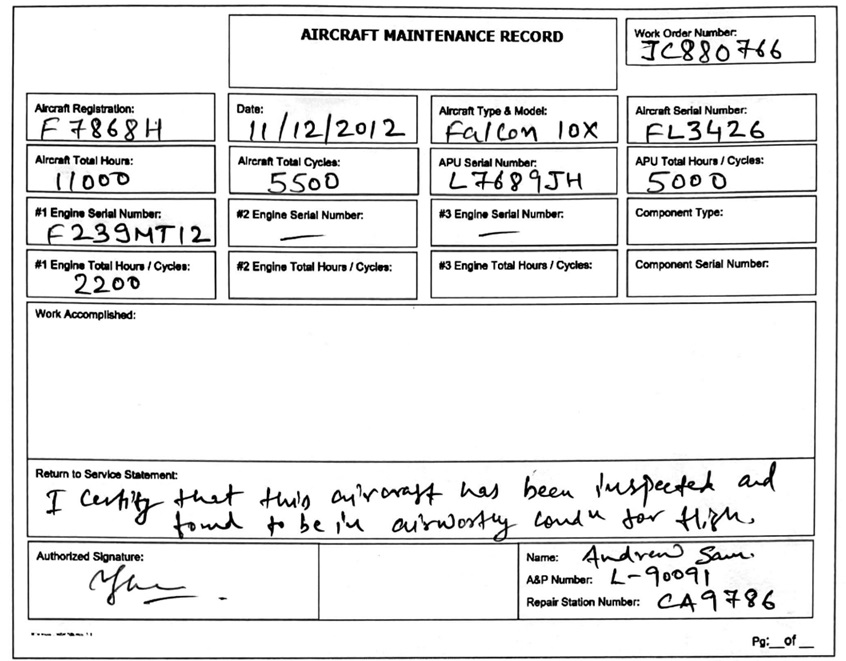 AIRCRAFT MAINTENANCE RECORD
Work Order Number:
JC880766
Aircraft Registration:
F7868H
Date:
11/12/2012
Aircraft Type & Model:
Falcon 10X
Aircraft Serial Number:
FL3426
Aircraft Total Hours:
11000
Aircraft Total Cycles:
5500
APU Serial Number:
L7689JH
APU Total Hours / Cycles:
5000
#1 Engine Serial Number:
F239MT12
#2 Engine Serial Number:
—
#3 Engine Serial Number:
—
Component Type:
#1 Engine Total Hours / Cycles:
2200
#2 Engine Total Hours / Cycles:
#3 Engine Total Hours / Cycles:
Component Serial Number:
Work Accomplished:
Return to Service Statement:
I certify that this aircraft has been inspected and
found to be in airworthy condn for fligh.
Authorized Signature:
Name: Andrew Sam.
A&P Number: L-90091
Repair Station Number: CA9786
Pg:__of__